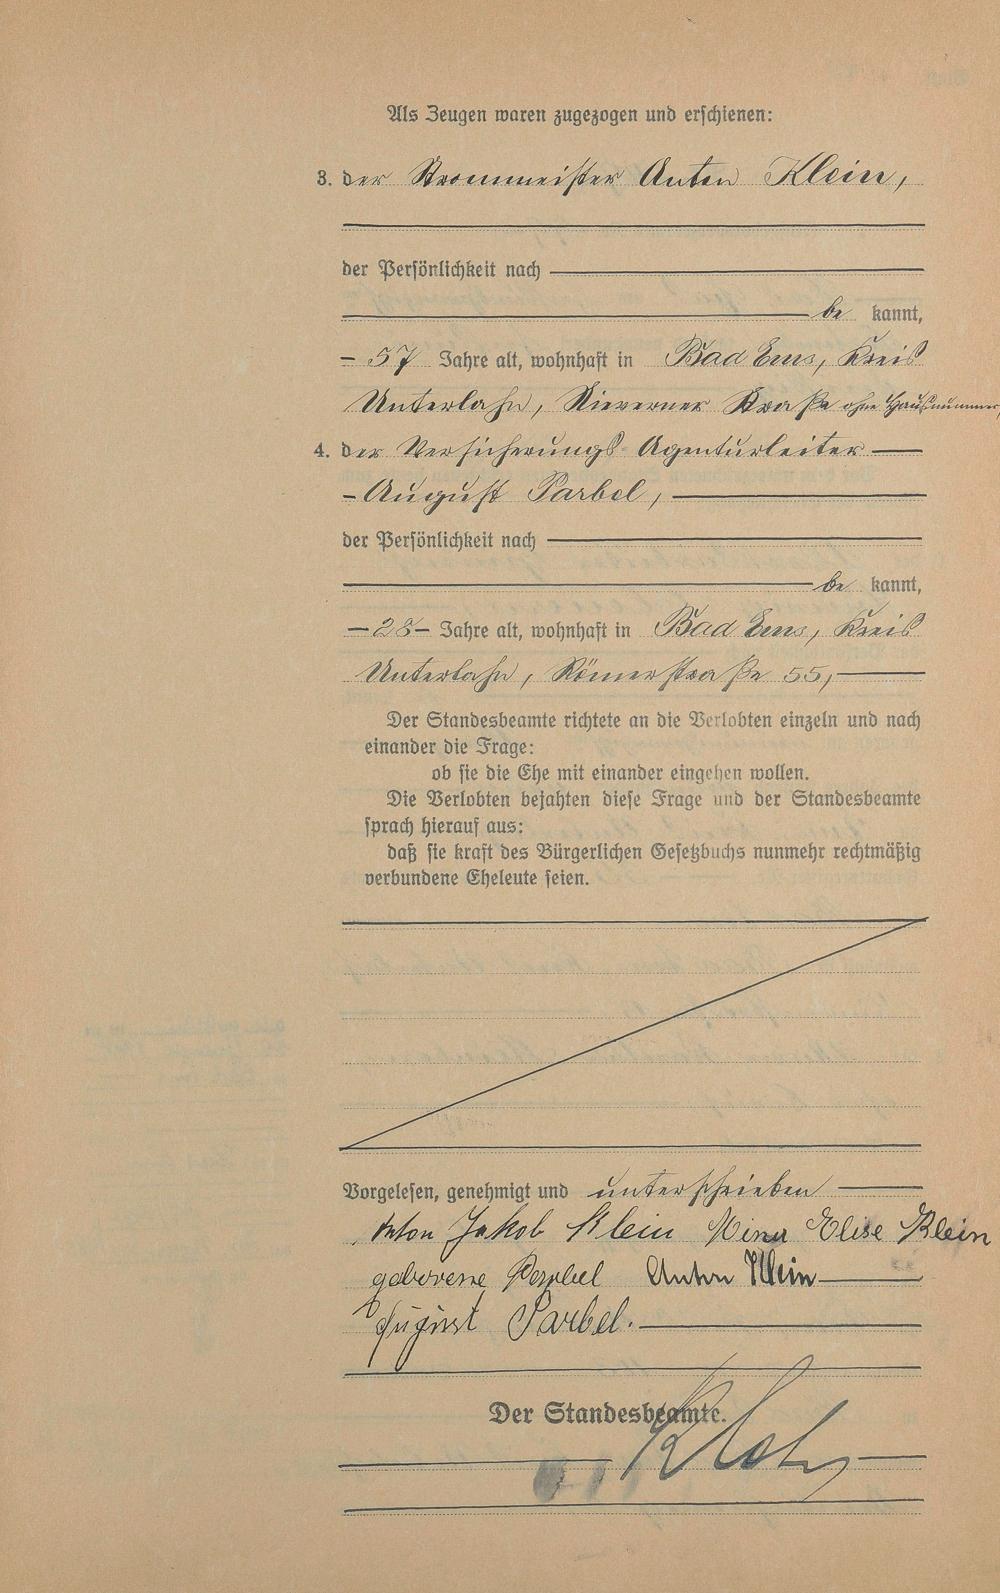 Als Zeugen waren zugezogen und erschienen:
3. der Strommeister Anton Klein,
der Persönlichkeit nach
be kannt,
57 Jahre alt, wohnhaft in Bad Ems, Kreis
Unterlahn, Nieverner Straße ohne Hausnummer,
4. der Versicherungs-Agenturleiter
August Parbel,
der Persönlichkeit nach
be kannt,
28 Jahre alt, wohnhaft in Bad Ems, Kreis
Unterlahn, Römerstraße 55,
Der Standesbeamte richtete an die Verlobten einzeln und nach
einander die Frage:
ob sie die Ehe mit einander eingehen wollen.
Die Verlobten bejahten diese Frage und der Standesbeamte
sprach hierauf aus:
daß sie kraft des Bürgerlichen Gesetzbuchs nunmehr rechtmäßig
verbundene Eheleute seien.
Vorgelesen, genehmigt und unterschrieben
Anton Jakob Klein Mina Elise Klein
geborene Parbel Anton Klein
August Parbel.
Der Standesbeamte.